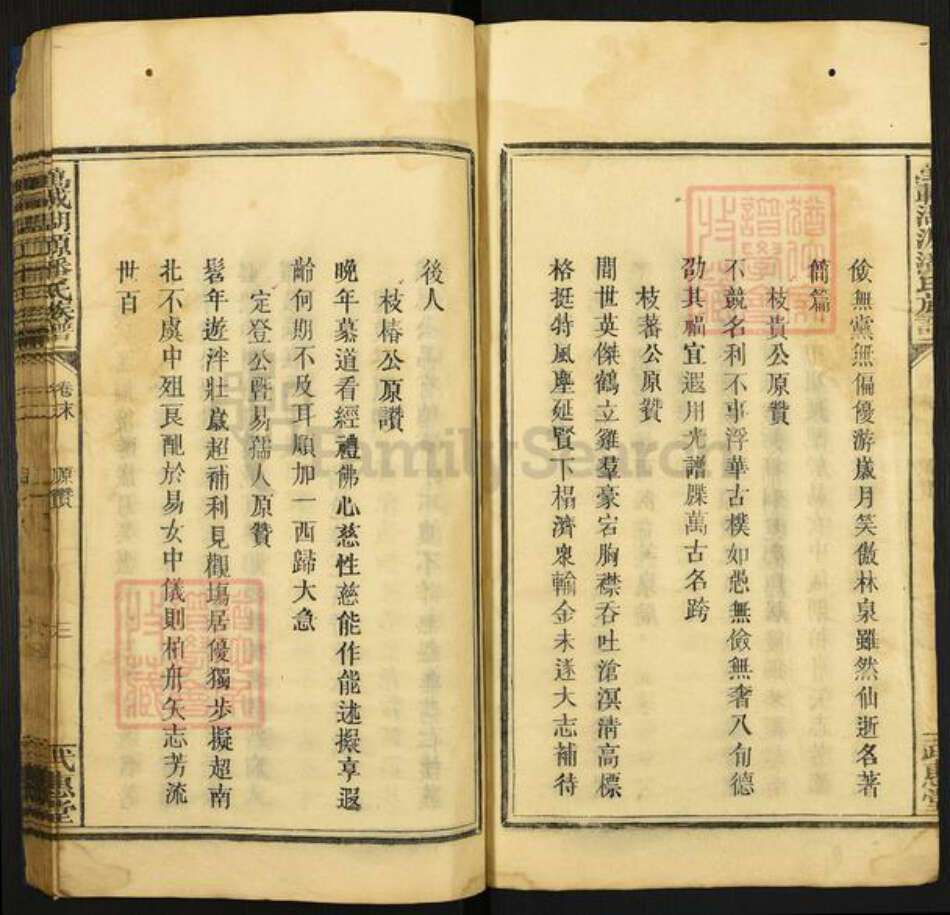 儉無黨無偏優游歲月笑傲林泉雖然仙逝名著
簡篇
枝貴公原贊
不競名利不事浮華古樸如愚無儉無奢八旬德
劭其福宜遐用光譜牒萬古名跨
枝蕃公原贊
間世英傑鶴立雞羣豪宕胸襟吞吐滄溟淸高標
格挺特風塵延賢下榻濟衆輸金未遂大志補待
後人
枝椿公原讚
晚年慕道看經禮佛心慈性慈能作能述擬享遐
齡何期不及耳順加一西歸大急
定登公曁易孺人原贊
髫年遊泮壯歲超補利見觀塲居優獨步擬超南
北不虞中殂良配於易女中儀則柏舟矢志芳流
世百
萬載湖源潘氏族譜
卷末
原讚
三
弍惠堂
FamilySearch